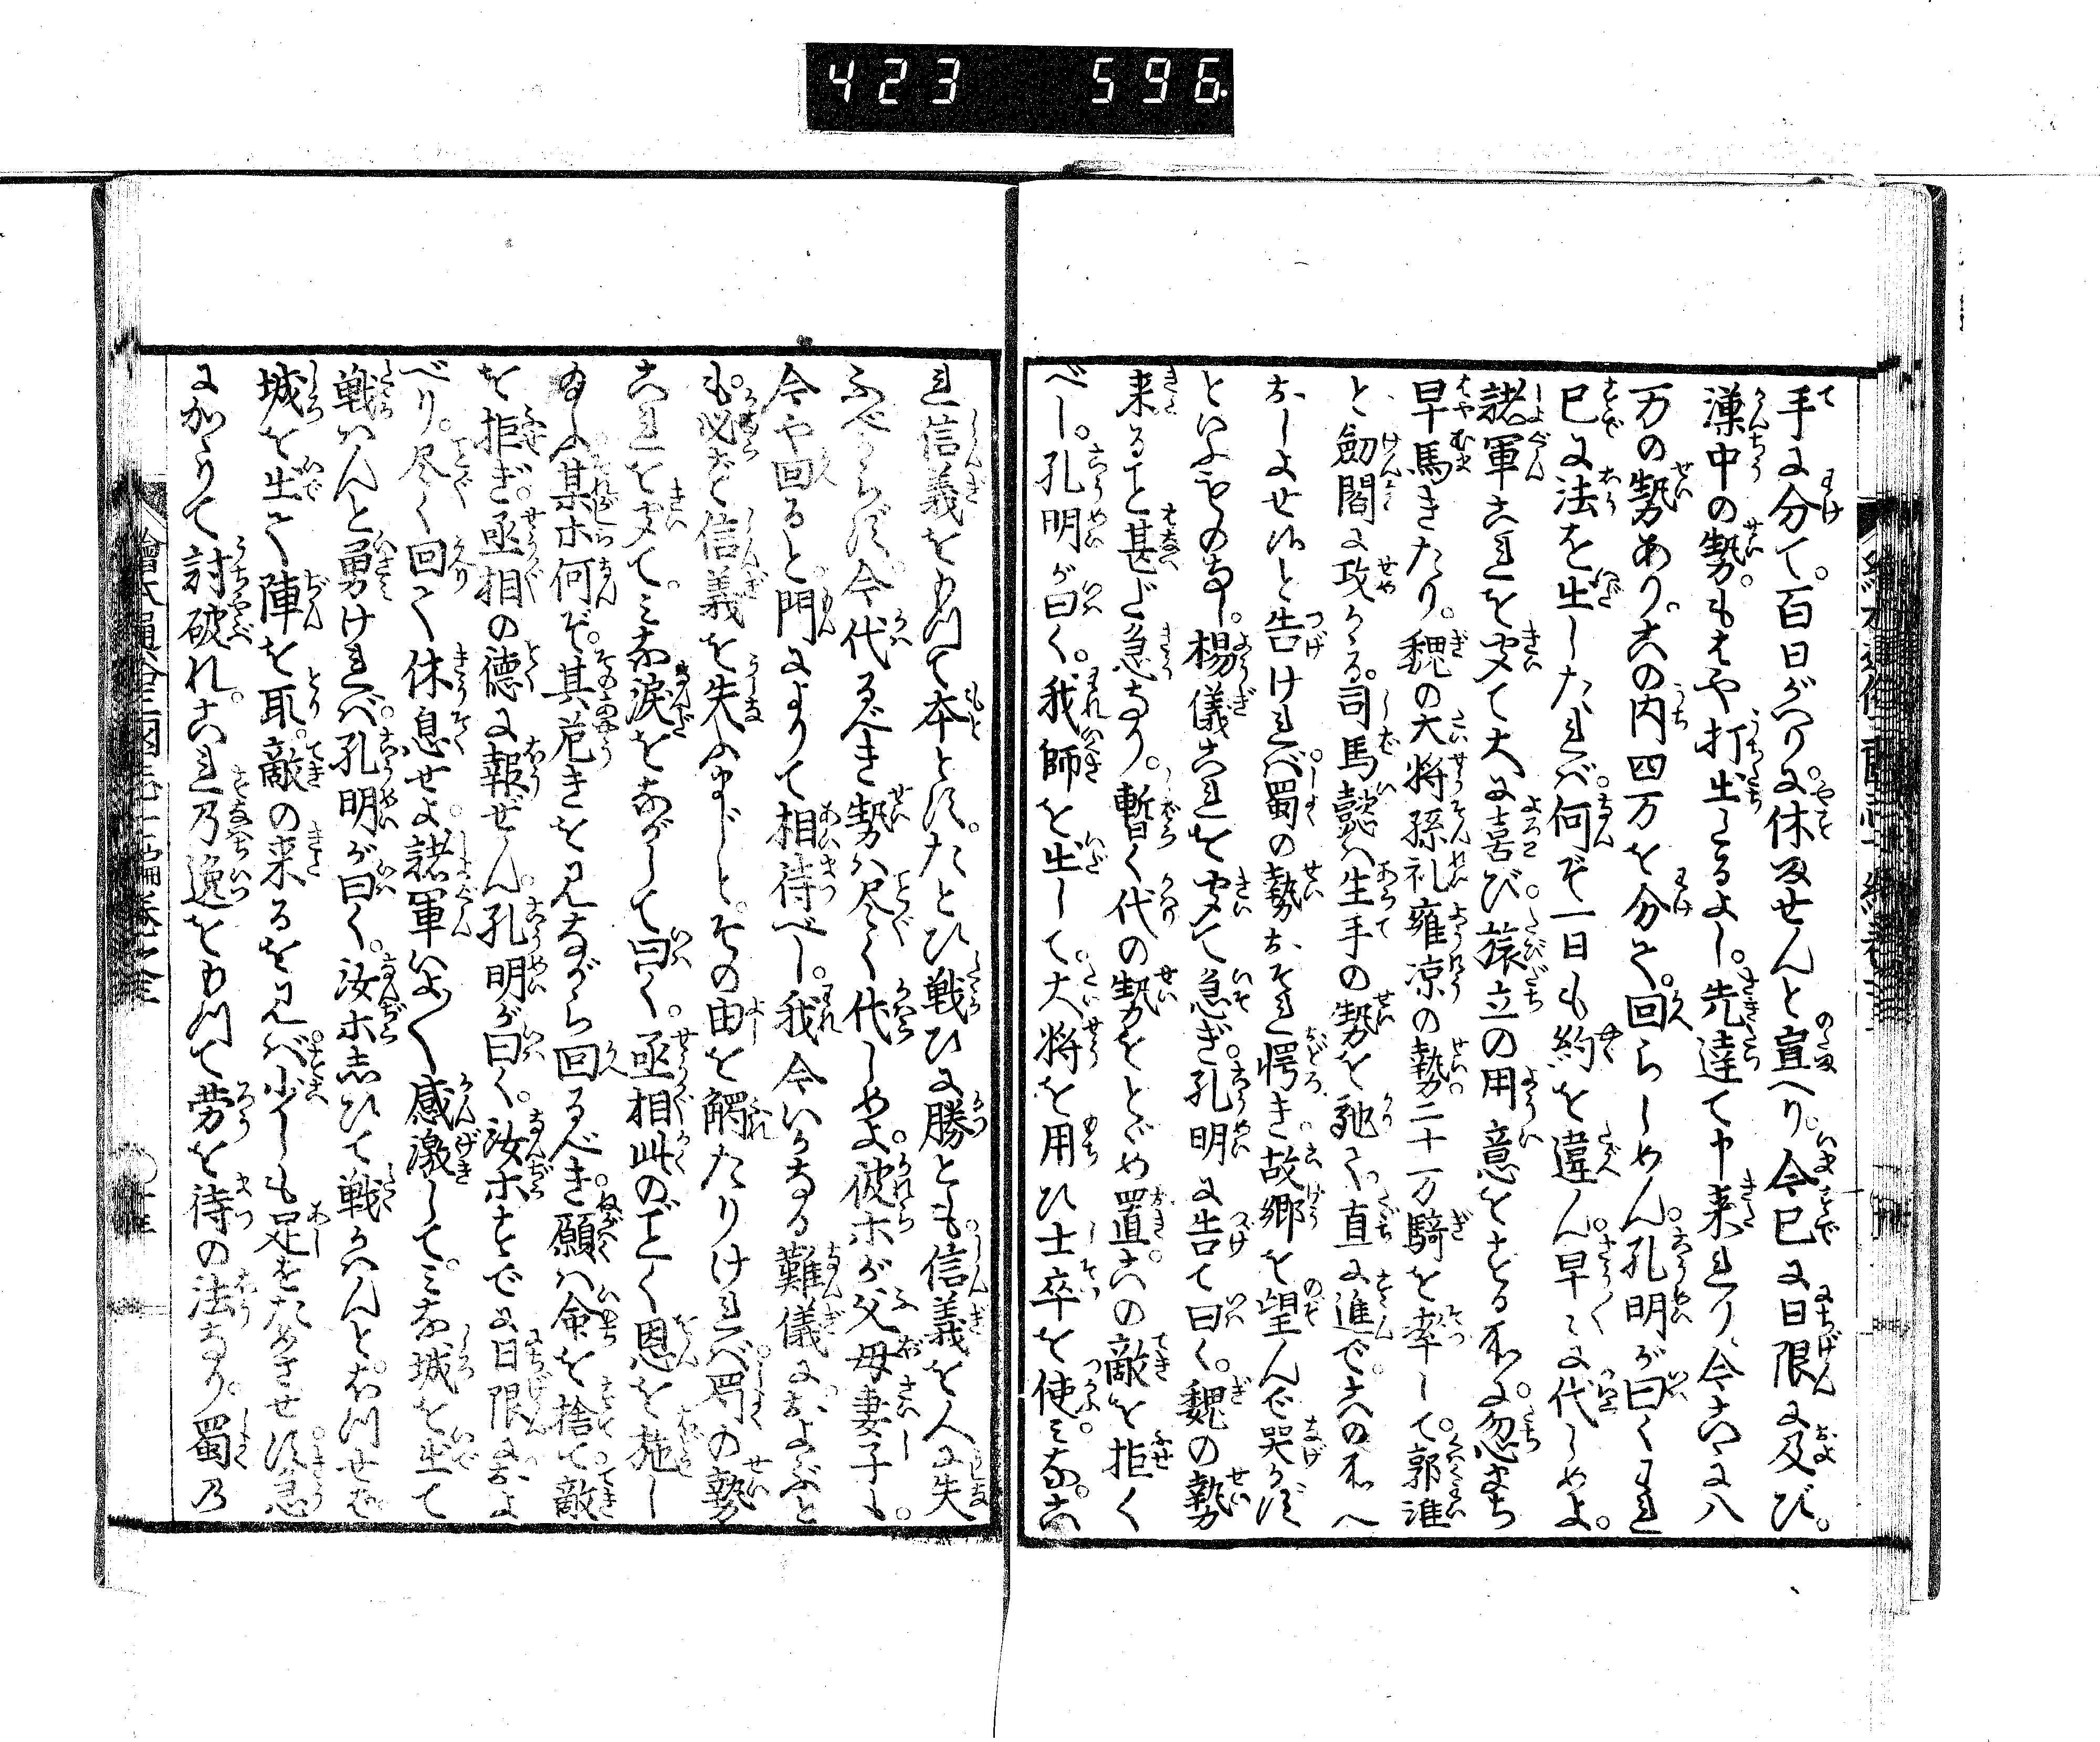 423 596.
手に分て。百日がへりに休息せんと宣へり。今已に日限に及び。
漢中の勢。もはや打出たるよし。先達て申来れり。今ここに八
万の勢あり。この内四万を分て。回らしめん。孔明が曰くわれ
已に法を出したれば。何ぞ一日も約を違ん。早々に代らしめよ。
諸軍これを聞て大に喜び。旅立の用意をする所に。忽まち
早馬きたり。魏の大将孫礼雍凉の勢二十万騎を率して。郭淮
と、剣閣に攻かかる。司馬懿ハ生手の勢を馳て。直に進で。この所へ
おしよせ候と告ければ。蜀の勢おそれ愕き。故郷を望んで哭かず
といふものなし。楊儀これを聞て急ぎ。孔明に告て曰く。魏の勢
来ること甚だ急なり。暫く代の勢をとゞめ置。この敵を拒く
べし。孔明が曰く。我師を出して。大将を用ひ士卒を使。みなこ
れ信義をもつて本とす。たとひ戦ひに勝とも。信義を人に失
ふべからず。今代るべき勢ハ尽く代しめよ。彼ホが父母妻子も。
今や回ると。門によりて相待べし。我今いかなる難儀に、およぶと
も。必ず信義を失ふまじと。その由を觸たりければ。蜀の勢
これを聞て。みな涙をながして曰く。丞相此のごとく恩を施し
玉ふ。某ホ何ぞ。其危きを見ながら回るべき。願ハ命を捨て。敵
を拒ぎ。丞相の徳に報ぜん。孔明が曰く。汝ホすでに日限におよ
べり。尽く回て休息せよ。諸軍いよ〱感激して。みな城を出て
戦ハんと勇ければ。孔明が曰く。汝ホ志ひて戦かハんと。ほつせば
城を出て陣を取。敵の来るを見ば。少しも足をためさせず。急
にかかりて討破れ。これ乃逸をもつて労を待の法なり。蜀乃